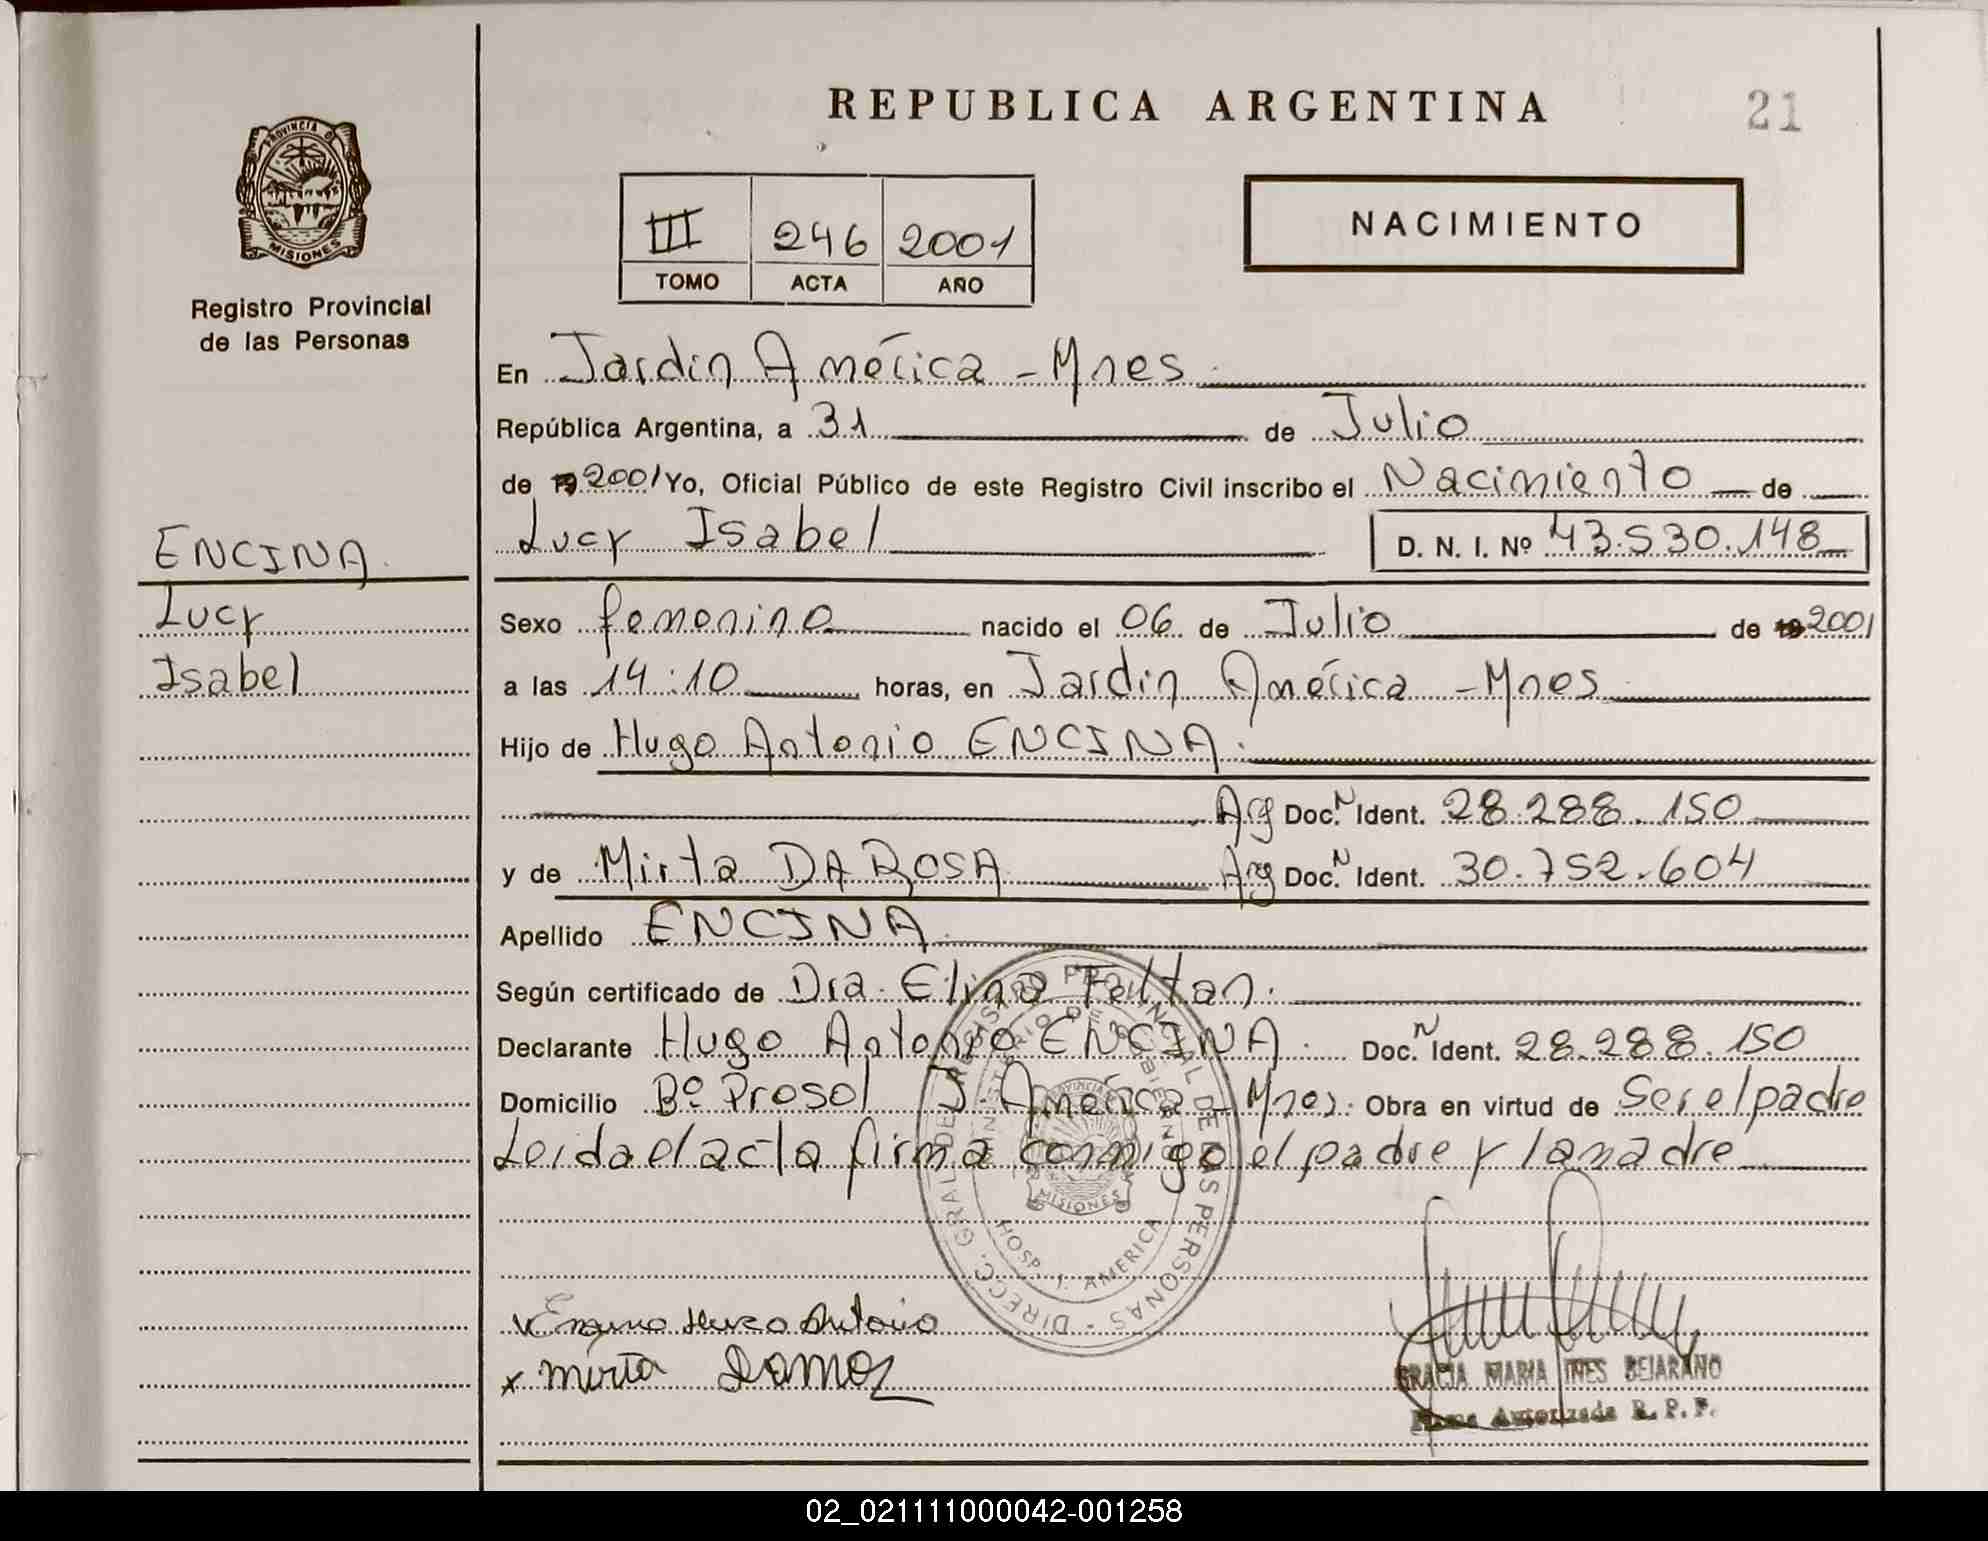 REPUBLICA ARGENTINA
21
PROVINCIA DE
MISIONES
Registro Provincial
de las Personas
III 246 2001
TOMO ACTA AÑO
NACIMIENTO
En Jardin América - Mnes
República Argentina, a 31 de Julio
de 19 2001 Yo, Oficial Público de este Registro Civil inscribo el Nacimiento de
Lucy Isabel D. N. I. Nº 43.530.148
ENCINA
Lucy
Isabel
Sexo femenino nacido el 06 de Julio de 19 2001
a las 14:10 horas, en Jardin América - Mnes
Hijo de Hugo Antonio ENCINA.
Arg Doc. N Ident. 28.288.150
y de Mirta DA ROSA Arg Doc. N Ident. 30.752.604
Apellido ENCINA
Según certificado de Dra. Elina Feltan.
Declarante Hugo Antonio ENCINA. Doc. N Ident. 28.288.150
Domicilio Bº Prosol J. América - Mnes. Obra en virtud de Ser el padre
Leida el acta firma conmigo el padre y la madre
DIRECC. GRAL DE REGISTRO PROVINCIAL DE LAS PERSONAS
MINISTERIO DE GOBIERNO
PROVINCIA
MISIONES
HOSP. J. AMERICA
Hugo Antonio
x Mirta
GRACIA MARIA INES BEJARANO
Firma Autorizada R. P. P.
02_021111000042-001258